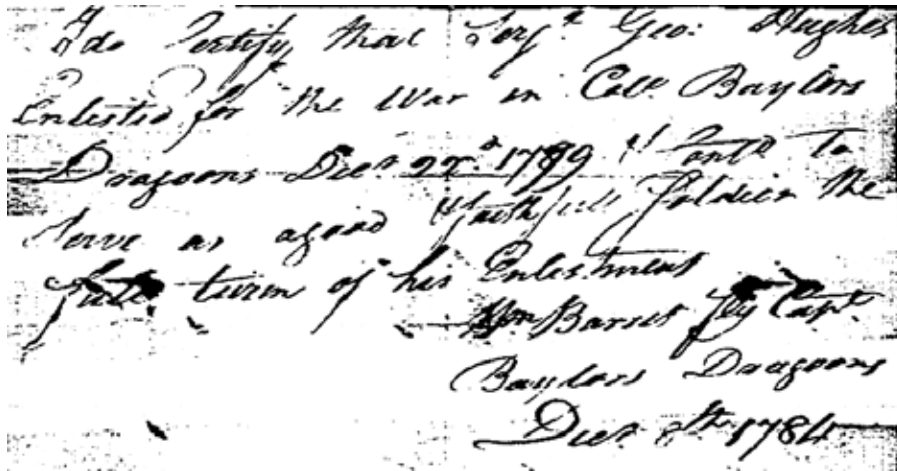 I do Certify that Sergt. Geo: Hughes
Enlisted for the War in Colo. Baylors
Dragoons Decr. 22d 1779 & Contd. to
Serve as a good & faithfull Soldier the
full turm of his Enlestment
Wm Barret Capt.
Baylors Dragoons
Decr 8th 1784